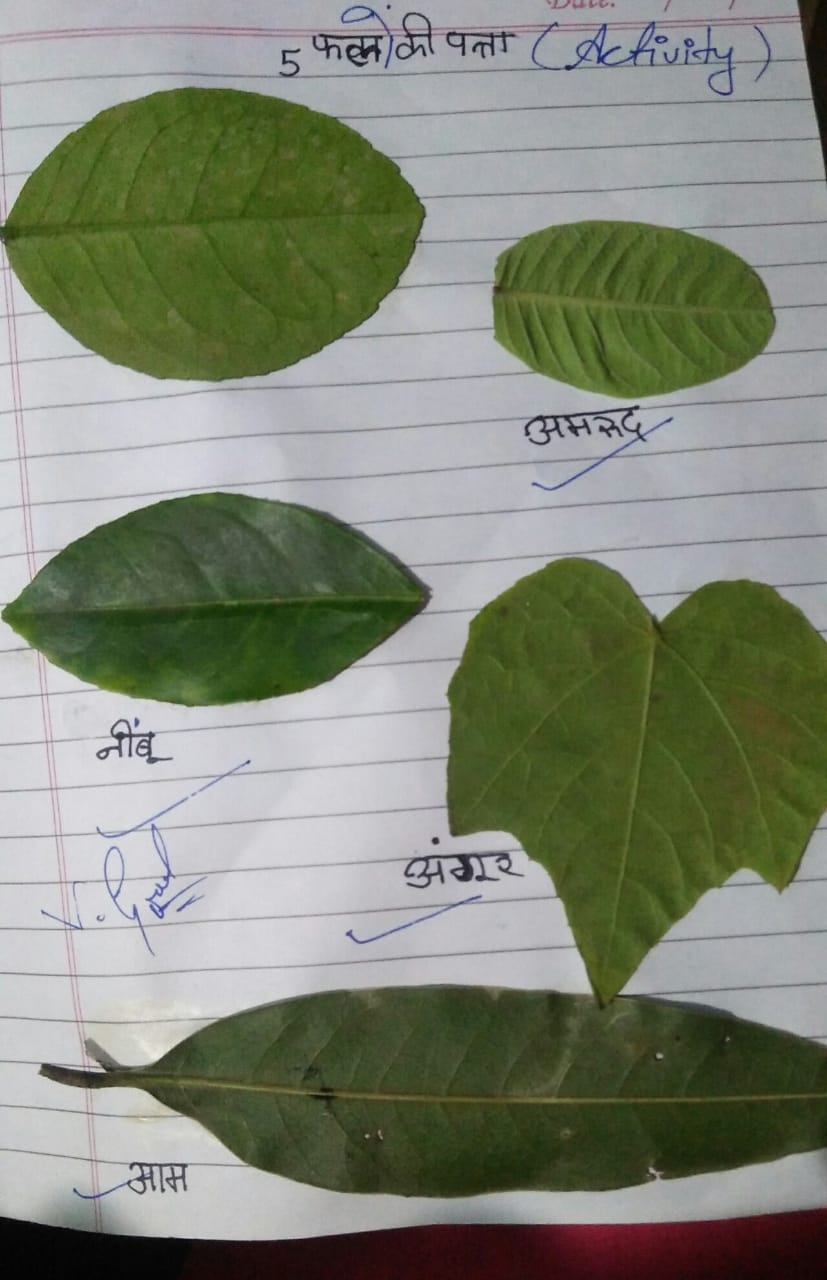 Date: / /
5 फलों की पत्ता (Activity)
अमरुद
नींबू
अंगूर
आम